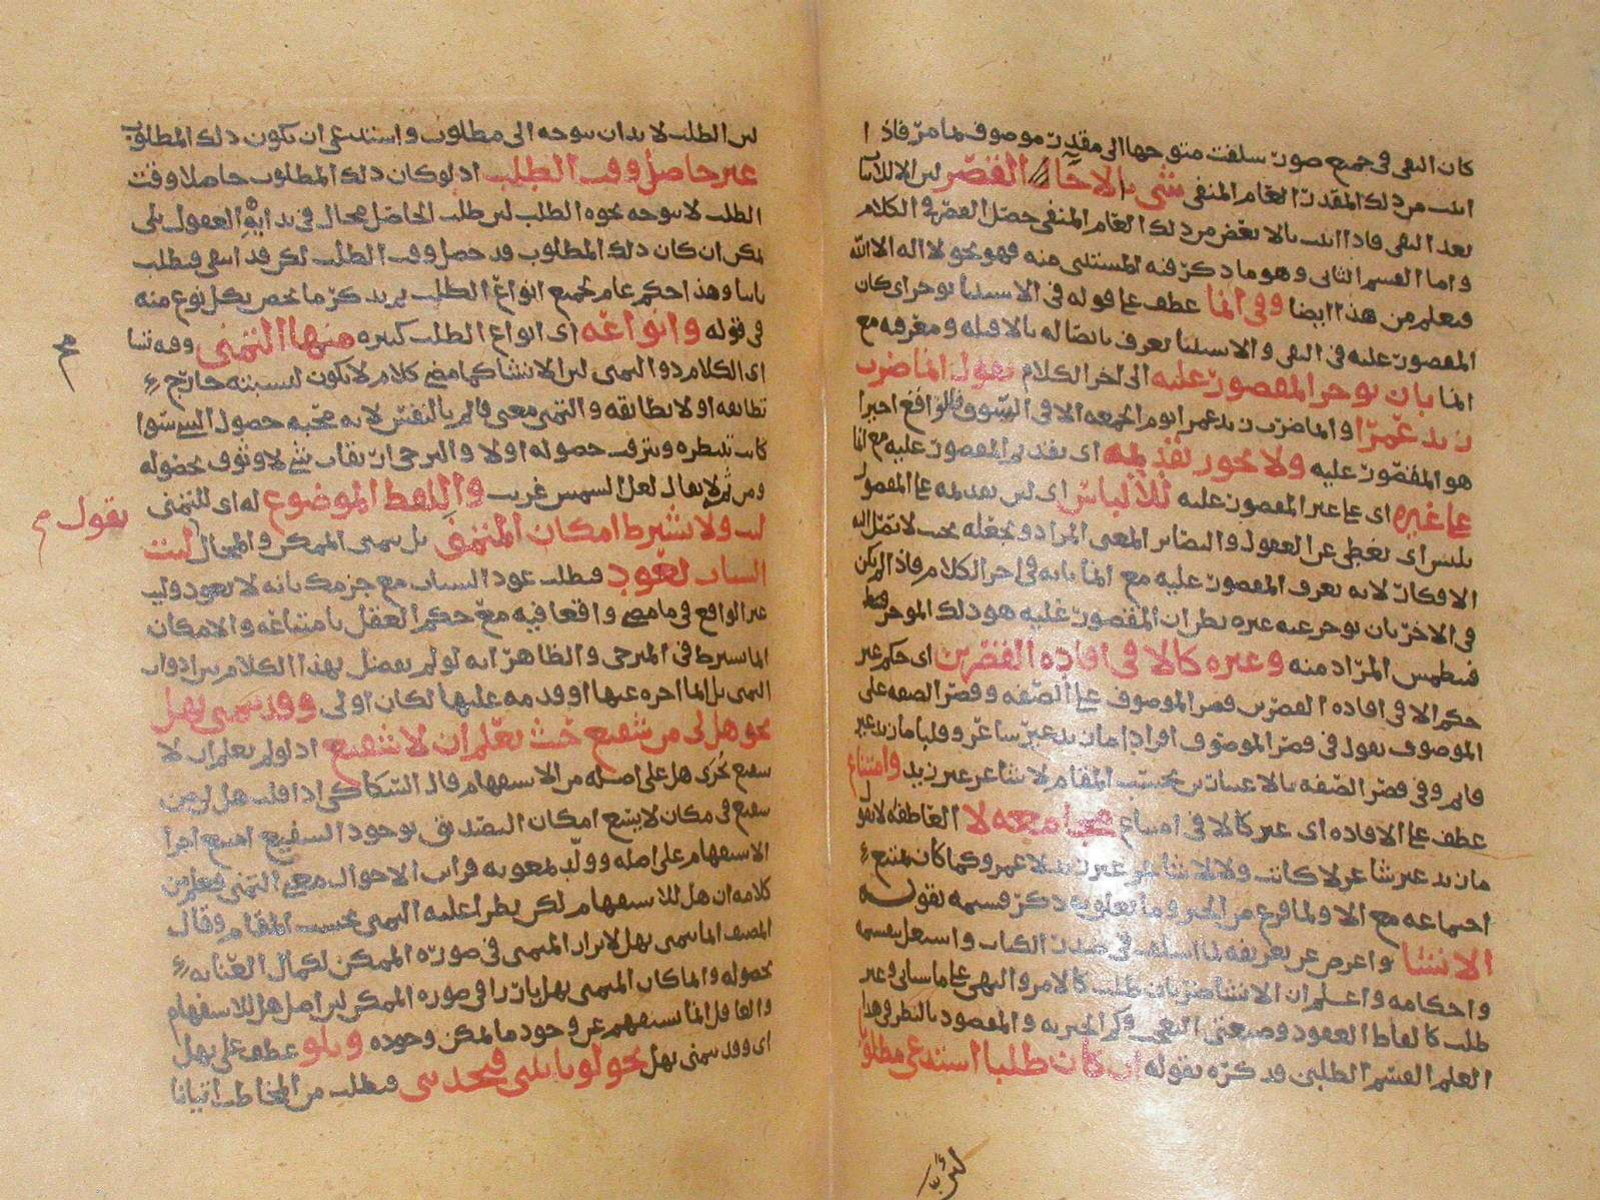 كان النفى فى جميع صور سلفت متوجها الى مقدر موصوف بما مر فاذا
اثبت من ذلك المقدر العام المنفى شئ بالا جا القصر لبن الا للاثبات
بعد النفى فاذا اثبت بالا بعض من ذلك العام المنفى حصل القصر فى الكلام
واما القسم الثانى وهو ما ذكر فيه المستثنى منه فهو نحو لا اله الا الله
فيعلم من هذا ايضا وفى انما عطف على قوله فى الاستثنا يوخر اى كان
المقصور عليه فى النفى والاستثنا يعرف باتصاله بالا قبله ومعرفه مع
انما بان يوخر المقصور عليه الى اخر الكلام تقول انما ضرب
زيد عمرا وانما ضرب زيد عمرا يوم الجمعه الا فى السوق فالواقع اخيرا
هو المقصور عليه ولا يجوز تقديمه اى تقديم المقصور عليه مع انما
على غيره اى على غير المقصور عليه للالباس اى لبن تقديمه على المقصور
يلبس اى يغطى عن العقول والبصائر المعنى المراد ويجعله بحيث لا تصل اليه
الافكار لانه يعرف المقصور عليه مع انما بانه فى اخر الكلام فاذا لم يكن
فى الاخر بان يوخر عنه غيره يظن ان المقصور عليه هو ذلك الموخر فقط
فينطمس المراد منه وغيره كالا فى افاده القصرين اى حكم غير
حكم الا فى افاده القصرين قصر الموصوف على الصفه وقصر الصفه على
الموصوف تقول فى قصر الموصوف افرادا ما زيد غير شاعر وقلبا ما زيد غير
قائم وفى قصر الصفه بالاعتبارين بحسب المقام لا شاعر غير زيد وامتناع
عطف على الافاده اى غير كالا فى امتناع مجامعه لا العاطفه لا تقول
ما زيد غير شاعر لا كاتب ولا لا شاعر غير زيد لا عمرو كما كان يمتنع
اجتماعه مع الا ولما فرغ من الخبر وما يتعلق به ذكر قسيمه بقوله
الانشا واعرض عن تعريفه لما اسلف فى صدر الكتاب واشتغل بتقسيمه
واحكامه واعلم ان الانشا ضربان طلب كالامر والنهى على ما سياتى وغير
طلب كالفاظ العقود وصيغتى التعجب وكم الخبريه والمقصود بالنظر فى هذا
العلم القسم الطلبى قد ذكره بقوله ان كان طلبا استدعى مطلوبا
لبن الطلب لا بد ان يتوجه الى مطلوب واستدعى ان يكون ذلك المطلوب
غير حاصل وقت الطلب اذ لو كان ذلك المطلوب حاصلا وقت
الطلب لا يتوجه نحوه الطلب لبن طلب الحاصل محال فى بداية العقول بلى
يمكن ان كان ذلك المطلوب قد حصل وقت الطلب لكن قد انتفى فيطلب
ثانيا وهذا حكم عام لجميع انواع الطلب يريد ذكر ما يختص بكل نوع منه
فى قوله وانواعه اى انواع الطلب كثيره منها التمنى
اى الكلام ذو التمنى لبن الانشا كما مضى كلام لا يكون لنسبته خارج
تطابقه او لا تطابقه والتمنى معنى قائم بالنفس لانه محبه حصول الشئ سوا
كانت تنتظره وتترقب حصوله او لا والترجى ارتقاب شئ لا وثوق بحصوله
ومن ثم لا يقال لعل الشمس غريب واللفظ الموضوع له اى للتمنى
ليت ولا يشترط امكان المتمنى بل يتمنى الممكن والمحال
تقول ليت
الشباب يعود فيطلب عود الشباب مع جزمك بانه لا يعود وليت
غير الواقع فيما مضى واقعا فيه مع حكم العقل بامتناعه والامكان
انما يشترط فى المترجى والظاهر انه لو لم يفصل بهذا الكلام بين ادوات
التمنى بل انما اخره عنها او قدمه عليها لكان اولى وقد يتمنى بهل
نحو هل لى من شفيع حيث يعلم ان لا شفيع اذ لو لم يعلم ان لا
شفيع تجرى هل على اصله من الاستفهام قال السكاكى اذا قلت هل لى من
شفيع فى مكان لا يسع امكان التصديق بوجود الشفيع امتنع اجرا
الاستفهام على اصله وولد بمعونه قرائن الاحوال معنى التمنى فيعلم من
كلامه ان هل للاستفهام لكن يطرا عليه التمنى بحسب المقام وقال
المصنف انما يتمنى بهل لابراز المتمنى فى صوره الممكن لكمال العنايه
بحصوله وانما كان المتمنى بهل بارزا فى صوره الممكن لبن اصل هل للاستفهام
والعاقل انما يستفهم عن وجود ما يمكن وجوده وبلو عطف على بهل
اى وقد يتمنى بهل نحو لو تاتينى فتحدثنى فيطلب من المخاطب اتيانا